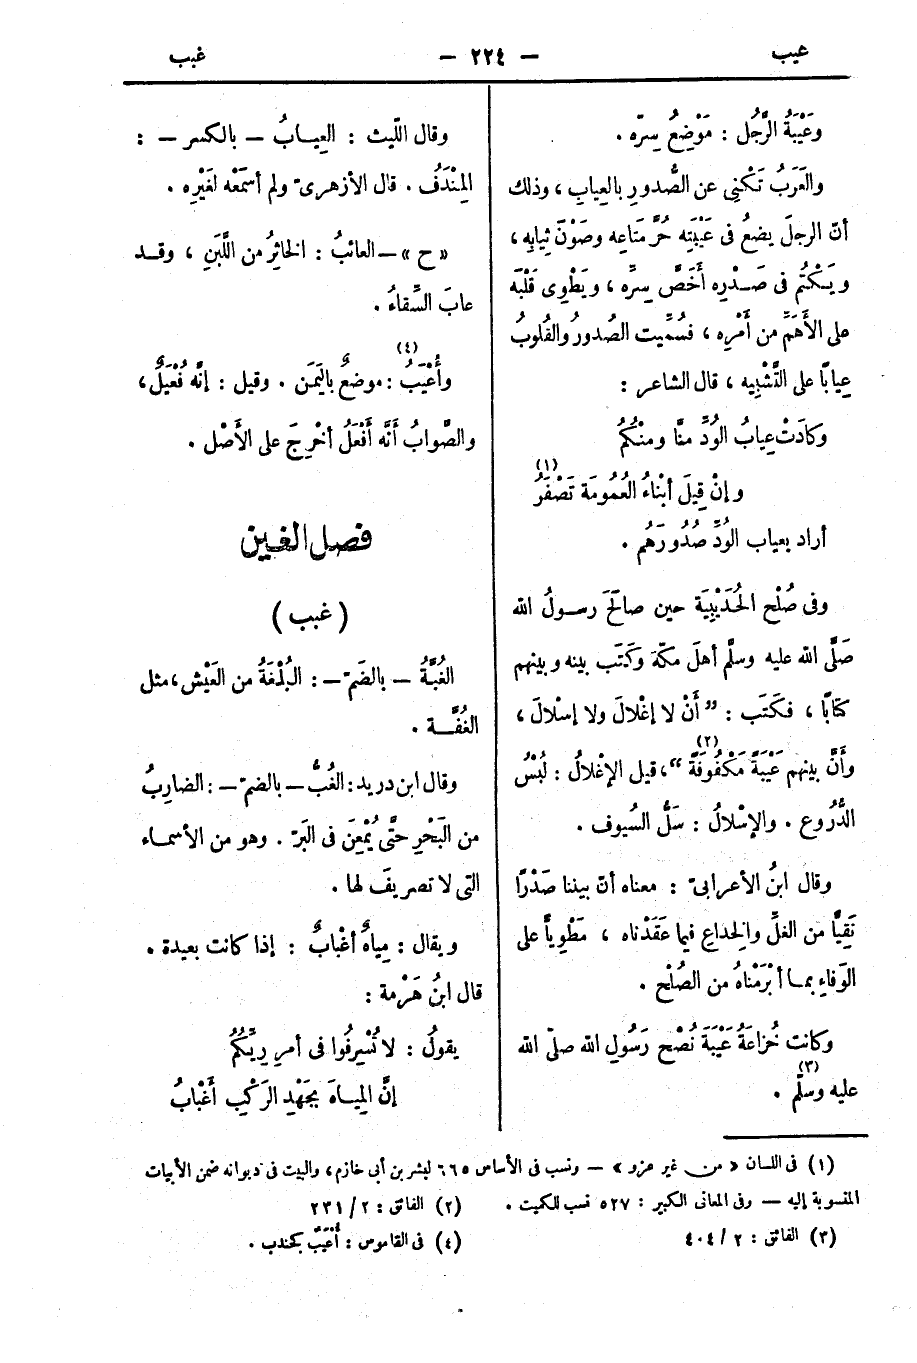 عيب — ٢٢٤ — غبب
وعَيْبَةُ الرَّجُل : مَوْضِعُ سِرّه .
والعَرَبُ تَكْنِى عن الصُّدورِ بالعِيابِ ، وذلك
أنّ الرجلَ يضعُ فى عَيْبَتِه حُرَّ مَتَاعِه وصَوْنَ ثِيابِه ،
ويَكْتُم فى صَدْرِه أَخَصَّ سِرِّه ، ويَطْوِى قَلْبَه
على الأَهَمِّ من أَمْرِه ، فسُمِّيت الصُدورُ والقُلوبُ
عِيابًا على التَّشْبِيه ، قال الشاعر :
وكَادَتْ عِيابُ الوُدِّ منَّا ومنْكُمُ
وإنْ قِيلَ أبْناءُ العُمُومَة تَصْفَرُ (١)
أراد بعياب الوُدِّ صُدُورَهُم .
وفى صُلْح الحُدَيْبِيَة حين صالَحَ رسولُ الله
صَلَّى الله عليه وسلَّم أهلَ مكّةَ وكَتَب بينه وبينهم
كتابًا ، فكَتَب : " أَنْ لا إغْلالَ ولا إسْلالَ ،
وأَنَّ بينهم عَيْبَةً مَكْفُوفَةً (٢) “ ، قيل الإغْلالُ : لُبْسُ
الدُّرُوع . والإسْلالُ : سَلُّ السُيوف .
وقال ابنُ الأعرابىّ : معناه أنّ بيننا صَدْرًا
نَقِيًّا من الغلِّ والخِداعِ فيما عَقَدْناه ، مَطْوِياًّ على
الوَفاءِ بما أبْرَمْناهُ من الصُلْح .
وكانت خُزاعَةُ عَيْبَةَ نُصْحِ رَسُولِ الله صلّى الله
عليه وسلّم (٣) .
وقال اللّيث : العِيابُ — بالكسر — :
المِنْدَفُ . قال الأزهرىّ ولم أسمَعْه لغَيْرِه .
« ح » — العائبُ : الخاثِرُ من اللَّبَنِ ، وقد
عابَ السِّقاءُ .
وأُعْيَبُ (٤) : موضعٌ باليَمَن . وقيل : إنَّه فُعْيَلٌ ،
والصَّوابُ أنَّه أَفْعَلُ أخْرِجَ على الأَصْل .
فصل الغين
( غبب )
الغُبَّةُ — بالضّم — : البُلْغَةُ من العَيْش ، مثل
الغُفَّة .
وقال ابن دريد : الغُبُّ — بالضمّ — : الضارِبُ
من البَحْرِ حتَّى يُمْعِنَ فى البَرّ . وهو من الأسماء
التى لا تصريفَ لها .
ويقال : مِياهٌ أغْبابٌ : إذا كانت بعيدة .
قال ابنُ هَرْمة :
يقولُ : لا تُسْرِفُوا فى أمرِ رِيِّكُمُ
إنَّ المِياهَ بجَهْدِ الرَكْبِ أَغْبابُ
(١) فى اللسان « من غير عزو » — ونسب فى الأساس ٦٦٥ لبشر بن أبى خازم ، والبيت فى ديوانه ضمن الأبيات
المنسوبة إليه — وفى المعانى الكبير : ٥٢٧ نسب للكميت . (٢) الفائق : ٢/ ٢٣١
(٣) الفائق : ٢ / ٤٠٤ (٤) فى القاموس : أُعْيَبٌ كجندب .